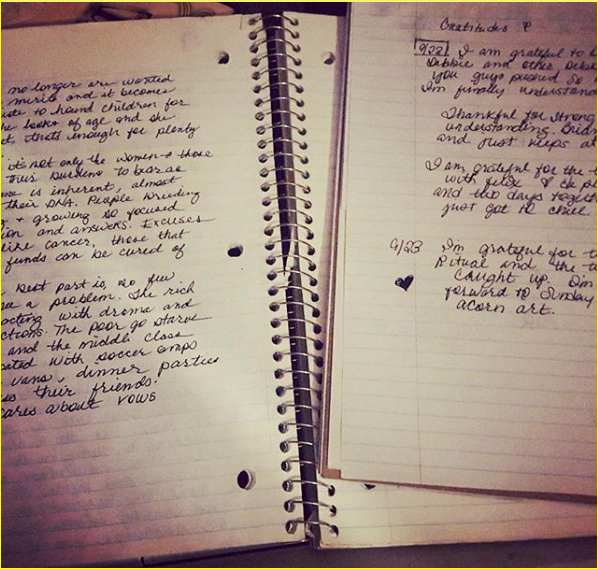 no longer are wanted
merits and it becomes
to hound children for
looks of age and she
that's enough for plenty
it's not only the women & those
this burden to bear as
is inherent, almost
their DNA. People breeding
& growing so focused
and answers. Excuses
like cancer, those that
funds can be cured of
best part is, so few
a problem. The rich
acting with drama and
The poor go starve
and the middle class
with soccer
vans, dinner parties
their friends.
cares about vows
Gratitudes
9/22 I am grateful to
Debbie and other
you guys pushed so
I'm finally
Thankful for strong
understanding. Brian
and just keeps
I am grateful for the
with
and two days
just got to chill.
9/23 I'm grateful for
Ritual and the
caught up. I'm
forward to Sunday
acorn art.